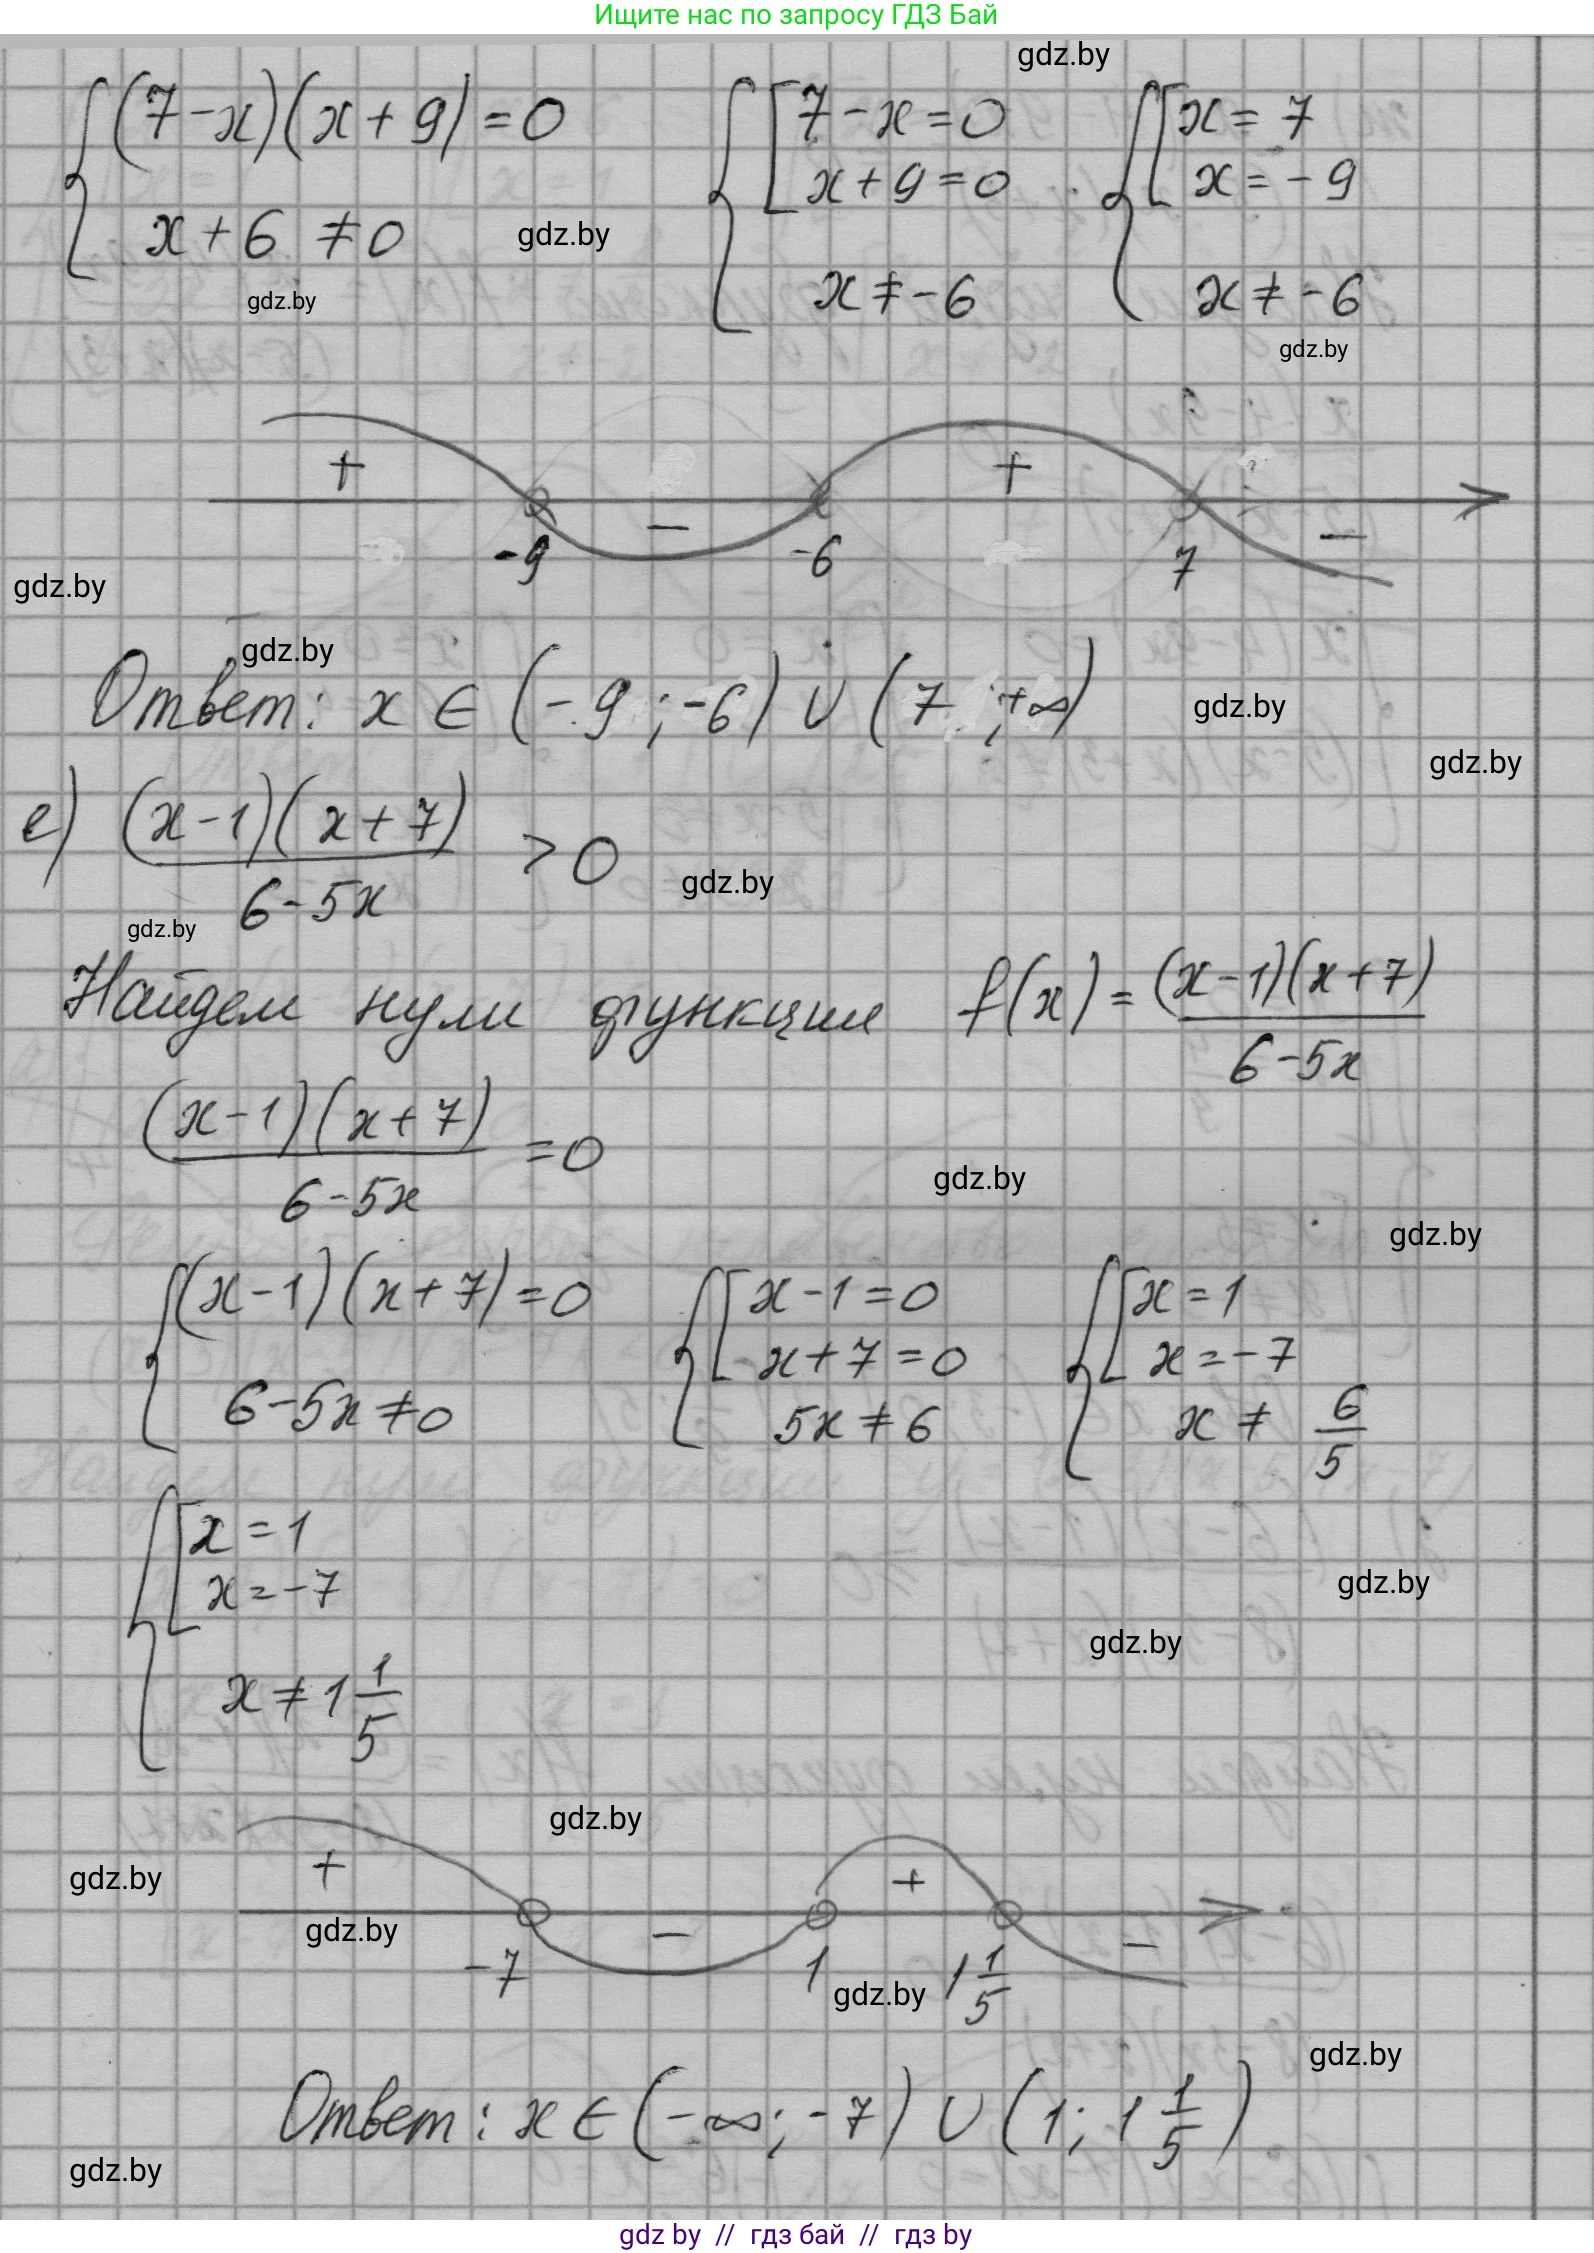 Ищите нас по запросу ГДЗ Бай
gdz.by
(7-x)(x+9)=0 7-x=0 x=7
x+9=0 x=-9
x+6≠0 gdz.by
x≠-6 x≠-6
gdz.by
gdz.by
+ - + -
-9 -6 7
gdz.by
gdz.by
Ответ: x ∈ (-9;-6) ∪ (7;+∞)
gdz.by
gdz.by
е) (x-1)(x+7)/(6-5x) > 0
gdz.by
gdz.by
Найдем нули функции f(x)=(x-1)(x+7)/(6-5x)
(x-1)(x+7)/(6-5x) =0
gdz.by
gdz.by
(x-1)(x+7)=0 x-1=0 x=1
x+7=0 x=-7
6-5x≠0 5x≠6 x≠6/5
x=1
x=-7
gdz.by
gdz.by
x≠1 1/5
gdz.by
gdz.by
+ - + -
gdz.by
-7 1 1 1/5
gdz.by
gdz.by
Ответ: x∈(-∞;-7) ∪ (1; 1 1/5)
gdz.by
gdz by // гдз бай // гдз by